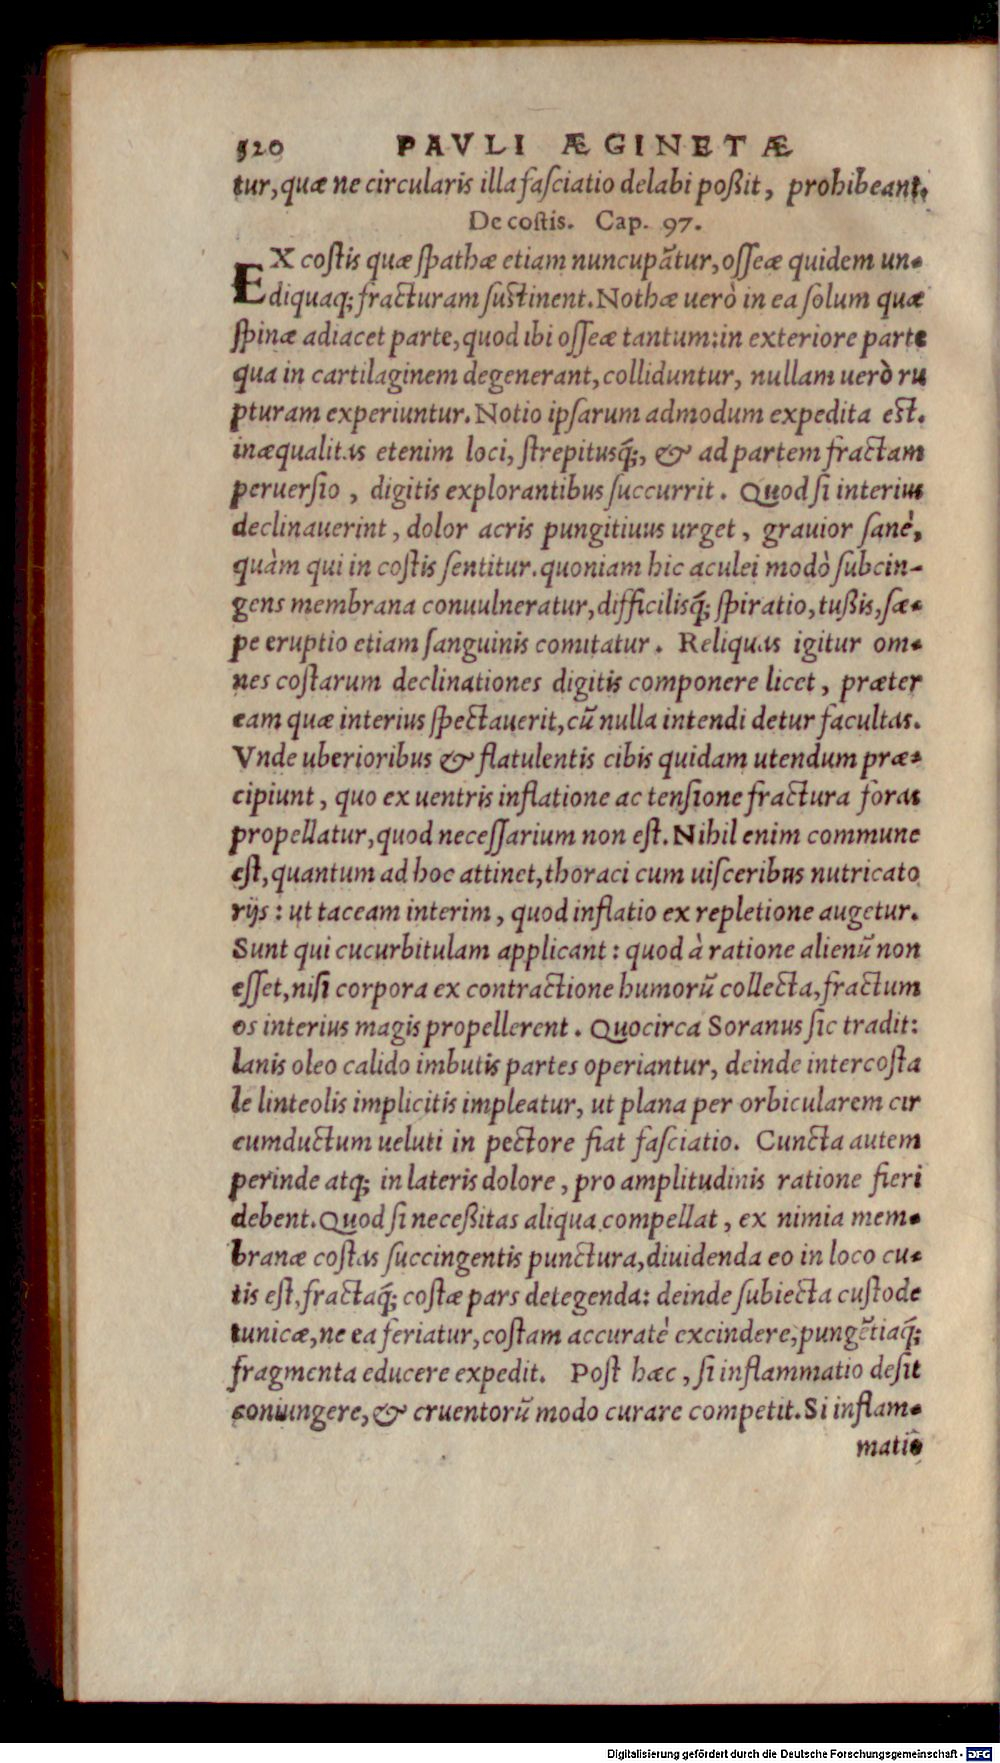 520 PAVLI ÆGINETÆ
tur, quæ ne circularis illa fasciatio delabi poßit, prohibeant.
De costis. Cap. 97.
EX costis quæ spathæ etiam nuncupãtur, osseæ quidem un-
diquaq; fracturam sustinent. Nothæ uerò in ea solum quæ
spinæ adiacet parte, quod ibi osseæ tantum: in exteriore parte
qua in cartilaginem degenerant, colliduntur, nullam uerò ru
pturam experiuntur. Notio ipsarum admodum expedita est.
inæqualitas etenim loci, strepitusq́;, & ad partem fractam
peruersio, digitis explorantibus succurrit. Quod si interius
declinauerint, dolor acris pungitiuus urget, grauior sanè,
quàm qui in costis sentitur. quoniam hic aculei modò subcin-
gens membrana conuulneratur, difficilisq́; spiratio, tußis, sæ-
pe eruptio etiam sanguinis comitatur. Reliquas igitur om-
nes costarum declinationes digitis componere licet, præter
eam quæ interius spectauerit, cũ nulla intendi detur facultas.
Vnde uberioribus & flatulentis cibis quidam utendum præ-
cipiunt, quo ex uentris inflatione ac tensione fractura foras
propellatur, quod necessarium non est. Nihil enim commune
est, quantum ad hoc attinet, thoraci cum uisceribus nutricato
rijs: ut taceam interim, quod inflatio ex repletione augetur.
Sunt qui cucurbitulam applicant: quod à ratione alienũ non
esset, nisi corpora ex contractione humorũ collecta, fractum
os interius magis propellerent. Quocirca Soranus sic tradit:
lanis oleo calido imbutis partes operiantur, deinde intercosta
le linteolis implicitis impleatur, ut plana per orbicularem cir
cumductum ueluti in pectore fiat fasciatio. Cuncta autem
perinde atq; in lateris dolore, pro amplitudinis ratione fieri
debent. Quod si neceßitas aliqua compellat, ex nimia mem-
branæ costas succingentis punctura, diuidenda eo in loco cu-
tis est, fractaq́; costæ pars detegenda: deinde subiecta custode
tunicæ, ne ea feriatur, costam accuratè excindere, pungẽtiaq́;
fragmenta educere expedit. Post hæc, si inflammatio desit
coniungere, & cruentorũ modo curare competit. Si inflam-
matio
Digitalisierung gefördert durch die Deutsche Forschungsgemeinschaft - DFG